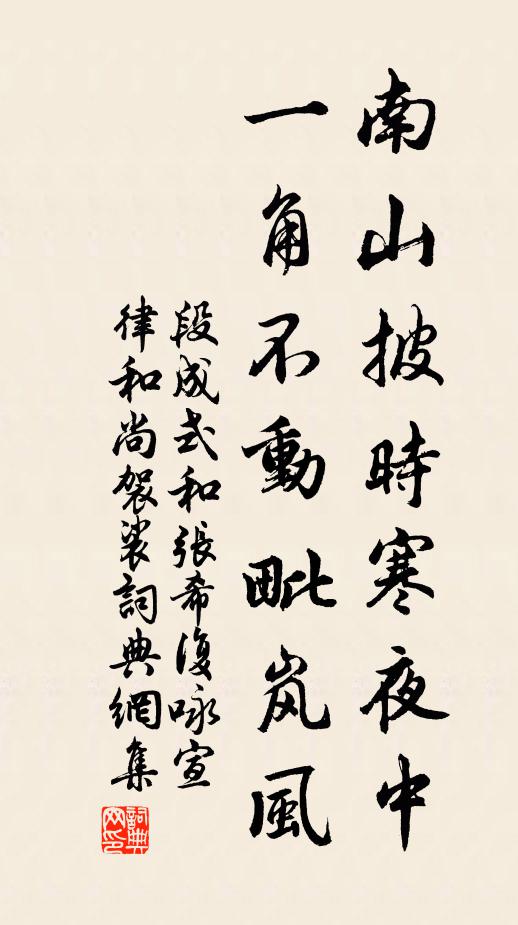 南山披時寒夜中
一角不動毗岚風
段成式和張希復咏宣
律和尚袈裟詞典網集
詞典网印